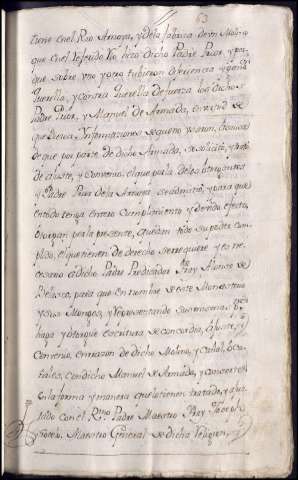 63
tiene en el Rio Arnoya, y de la fabrica de un Molino
que en el referido Rio hizo dicho Padre Prior, y por
que sobre uno y otro tubieron diferencia y
Querella, y contra Querella de fuerza los dichos
Padre Prior, y Manuel de Armada, en razon de
que Dieron Ynformaciones
de que por parte de dicho Armada, se solicitó, y trató
de ajuste, y Convenio, el que por la
y Padre Prior de la Arnoya se admitió, y para que
en todo tenga entero Cumplimiento y devido efecto,
otorgan por la presente, que dan todo su poder Cum
plido, el que tienen de derecho se requiere y es ne
cesario a dicho Padre Predicador Fray Alonso de
Belasco, para que en nombre de este Monasterio
y sus Monges, y representando sus
haga y otorgue escritura de concordia, ajuste, y
Convenio, en razon de dicho Molino, y Cañal,
con dicho Manuel de Armada, y conciertos
en la forma y manera que lo tienen tratado, y aju
stado con el Rmo. Padre Maestro Fray Joseph
Maestro General de dicha Religion,